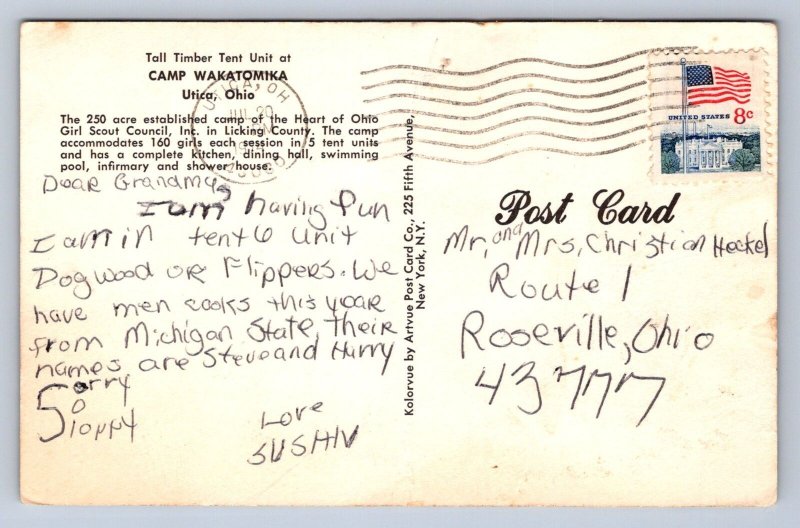 Tall Timber Tent Unit at
CAMP WAKATOMIKA
Utica, Ohio
The 250 acre established camp of the Heart of Ohio
Girl Scout Council, Inc. in Licking County. The camp
accommodates 160 girls each session in 5 tent units
and has a complete kitchen, dining hall, swimming
pool, infirmary and shower house.
UTICA, OH
JUL 20
Dear Grandma,
I am having fun
I am in tent 6 Unit
Dogwood or Flippers. We
have men cooks this year
from Michigan State, their
names are Steve and Harry
Sorry
So
Sloppy
Love
Kolorvue by Artvue Post Card Co., 225 Fifth Avenue,
New York, N.Y.
UNITED STATES 8c
Post Card
Mr. and Mrs. Christian Heckel
Route 1
Roseville, Ohio
43777